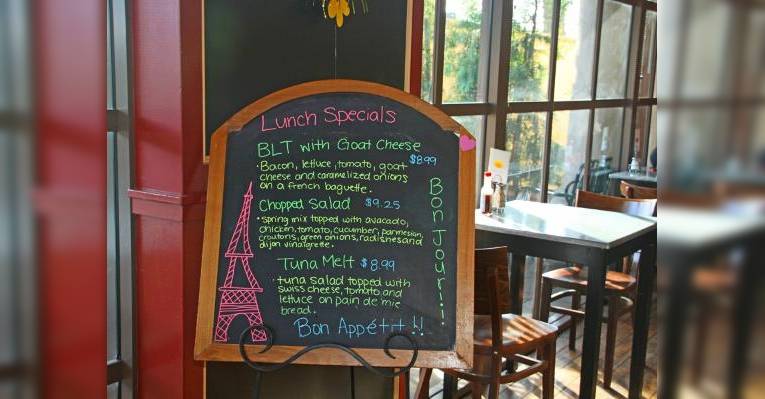 Lunch Specials
BLT with Goat Cheese
• Bacon, lettuce, tomato, goat $8.99
cheese and caramelized onions
on a french baguette.
Chopped Salad $9.25
• spring mix topped with avacado,
chicken, tomato, cucumber, parmesian,
croutons, green onions, radishes and
dijon vinaigrette.
Tuna Melt $8.99
• tuna salad topped with
swiss cheese, tomato and
lettuce on pain de mie
bread.
Bon Appétit!!
Bon Jour!!